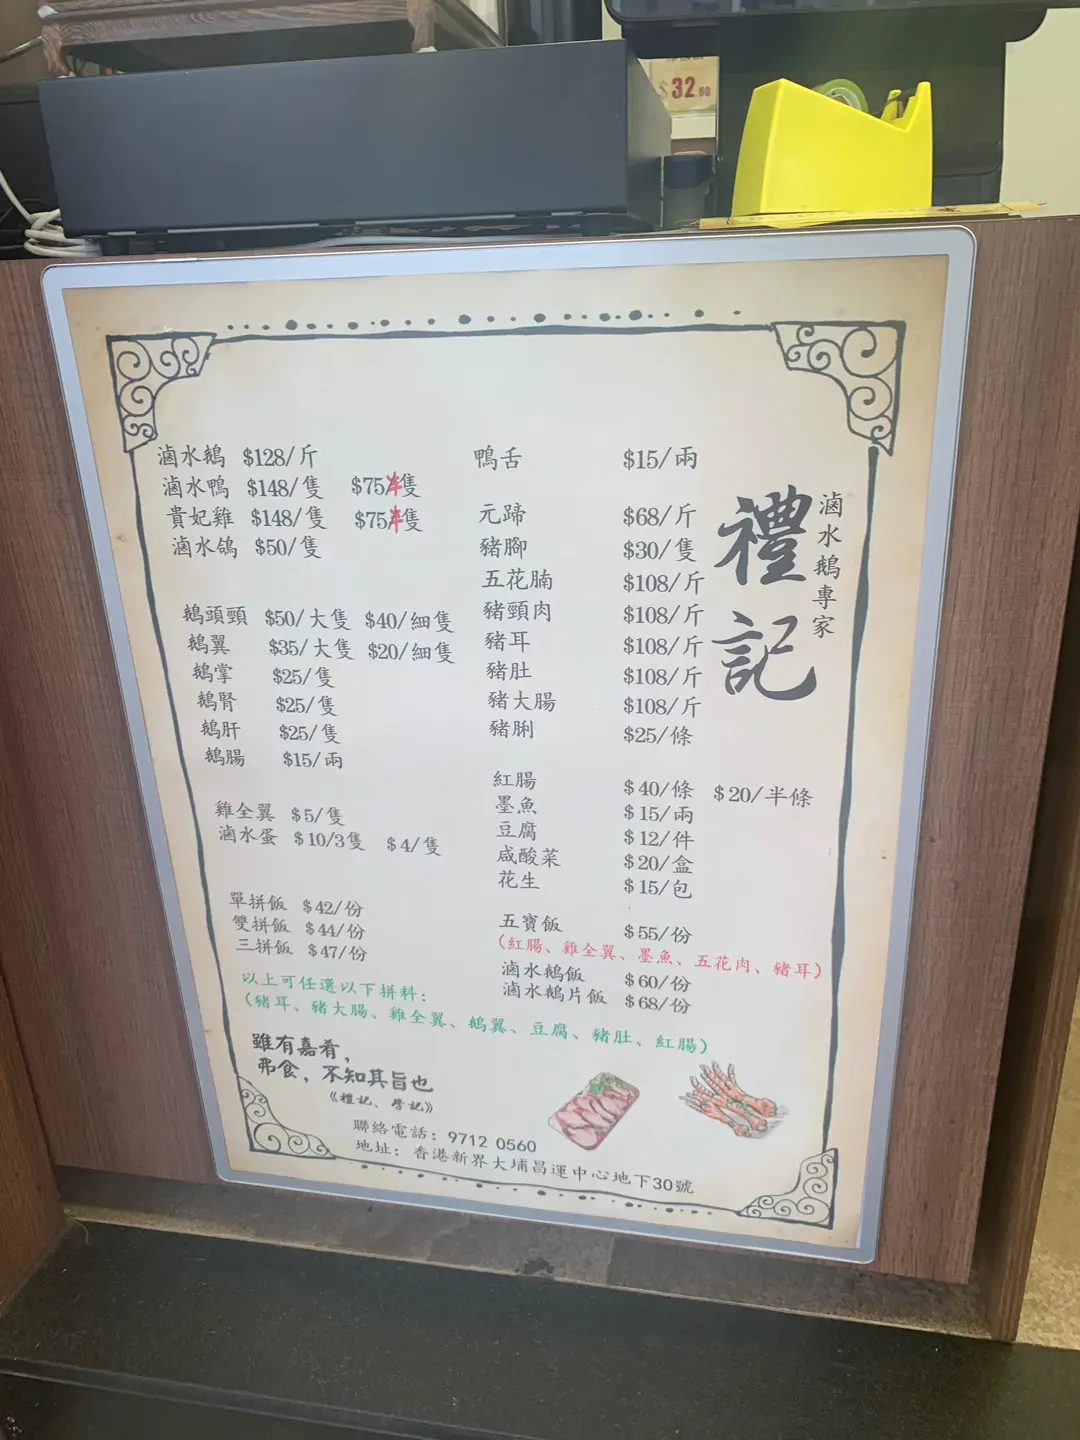 $32.80
滷水鵝 $128/斤
滷水鴨 $148/隻 $75/半隻
貴妃雞 $148/隻 $75/半隻
滷水鴿 $50/隻
鵝頭頸 $50/大隻 $40/細隻
鵝翼 $35/大隻 $20/細隻
鵝掌 $25/隻
鵝腎 $25/隻
鵝肝 $25/隻
鵝腸 $15/兩
雞全翼 $5/隻
滷水蛋 $10/3隻 $4/隻
單拼飯 $42/份
雙拼飯 $44/份
三拼飯 $47/份
以上可任選以下拼料：
（豬耳、豬大腸、雞全翼、鵝翼、豆腐、豬肚、紅腸）
鴨舌 $15/兩
元蹄 $68/斤
豬腳 $30/隻
五花腩 $108/斤
豬頸肉 $108/斤
豬耳 $108/斤
豬肚 $108/斤
豬大腸 $108/斤
豬脷 $25/條
紅腸 $40/條 $20/半條
墨魚 $15/兩
豆腐 $12/件
咸酸菜 $20/盒
花生 $15/包
五寶飯 $55/份
（紅腸、雞全翼、墨魚、五花肉、豬耳）
滷水鵝飯 $60/份
滷水鵝片飯 $68/份
禮記
滷水鵝專家
雖有嘉肴，
弗食，不知其旨也
《禮記、學記》
聯絡電話：9712 0560
地址：香港新界大埔昌運中心地下30號